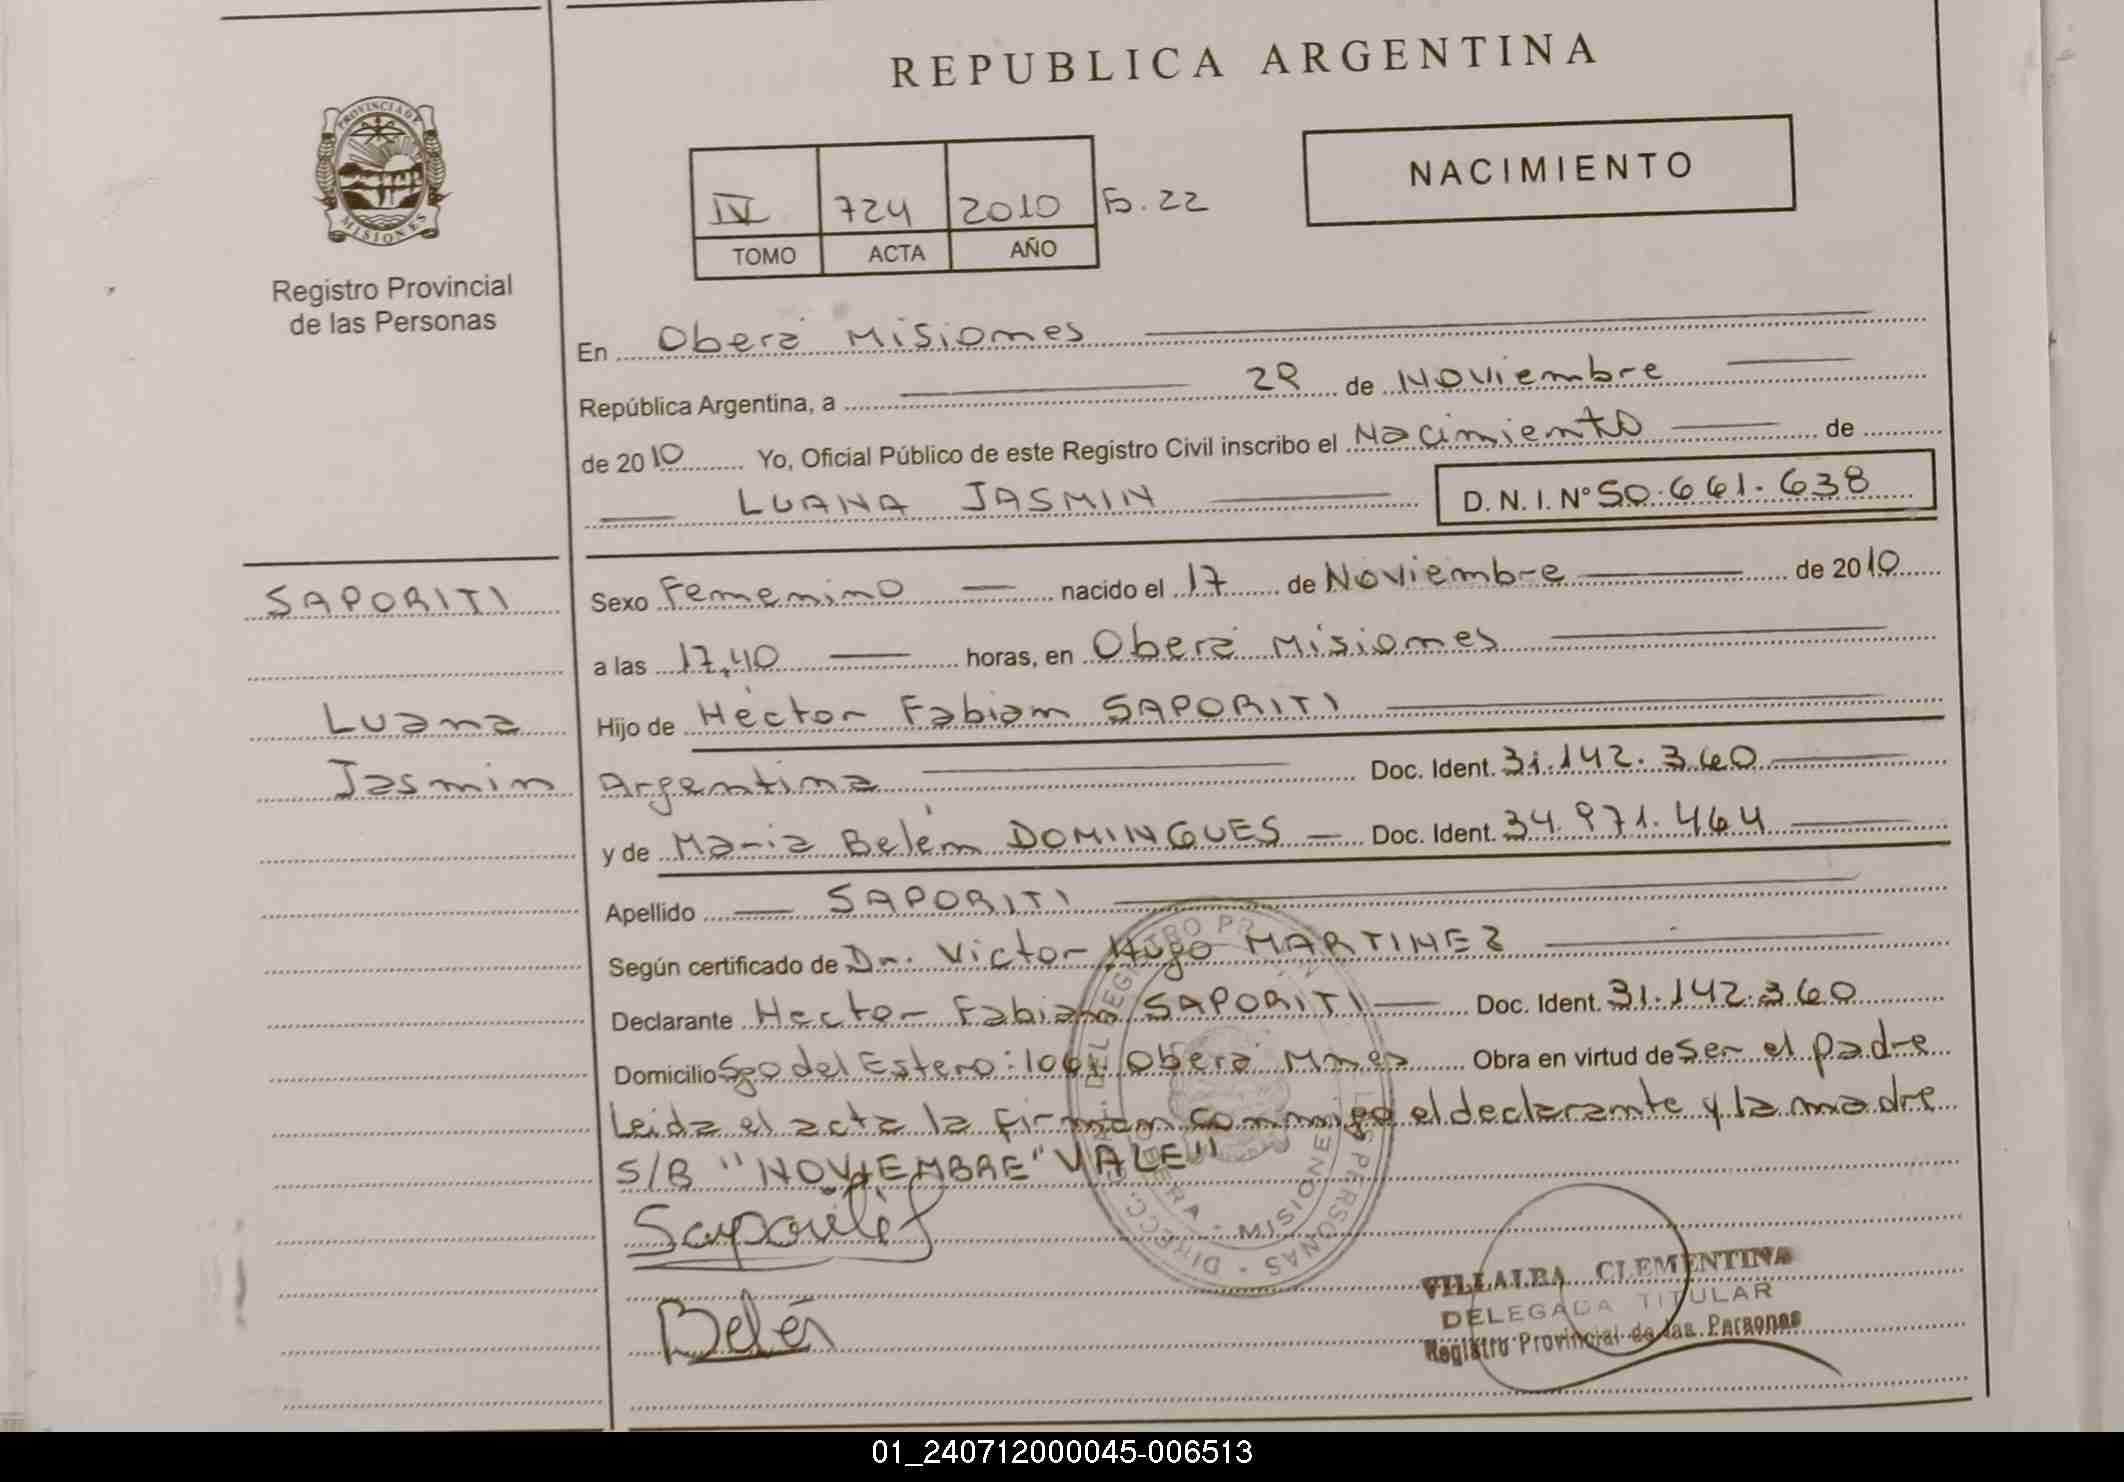 REPUBLICA ARGENTINA
PROVINCIA DE
MISIONES
Registro Provincial
de las Personas
IV 724 2010 Fo. 22
TOMO ACTA AÑO
NACIMIENTO
En Oberá Misiones
República Argentina, a 29 de Noviembre
de 2010 Yo, Oficial Público de este Registro Civil inscribo el Nacimiento de
LUANA JASMIN D. N. I. N° 50.661.638
SAPORITI
Luana
Jasmin
Sexo Femenino nacido el 17 de Noviembre de 2010
a las 17,40 horas, en Oberá Misiones
Hijo de Héctor Fabian SAPORITI
Argentina Doc. Ident. 31.142.360
y de Maria Belém DOMINGUES Doc. Ident. 34.971.464
Apellido SAPORITI
Según certificado de Dr. Victor Hugo MARTINEZ
Declarante Hector Fabian SAPORITI Doc. Ident. 31.142.360
Domicilio Sgo del Estero: Oberá Mnes Obra en virtud de Ser el padre
Leida el acta la firman conmigo el declarante y la madre
S/B "NOVIEMBRE" VALE"
Saporiti
Belén
VILLALBA CLEMENTINA
DELEGADA TITULAR
Registro Provincial de las Personas
01_240712000045-006513